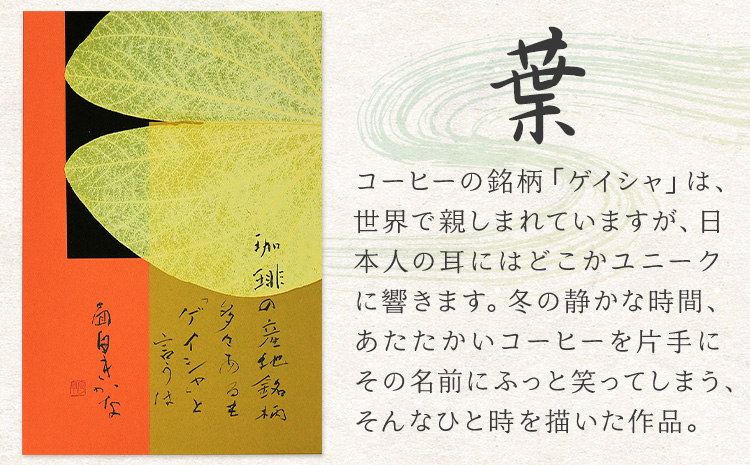 葉
コーヒーの銘柄「ゲイシャ」は、
世界で親しまれていますが、日
本人の耳にはどこかユニーク
に響きます。冬の静かな時間、
あたたかいコーヒーを片手に
その名前にふっと笑ってしまう、
そんなひと時を描いた作品。
珈琲の産地銘柄
多々あるも
「ゲイシャ」と
言うは
面白きかな